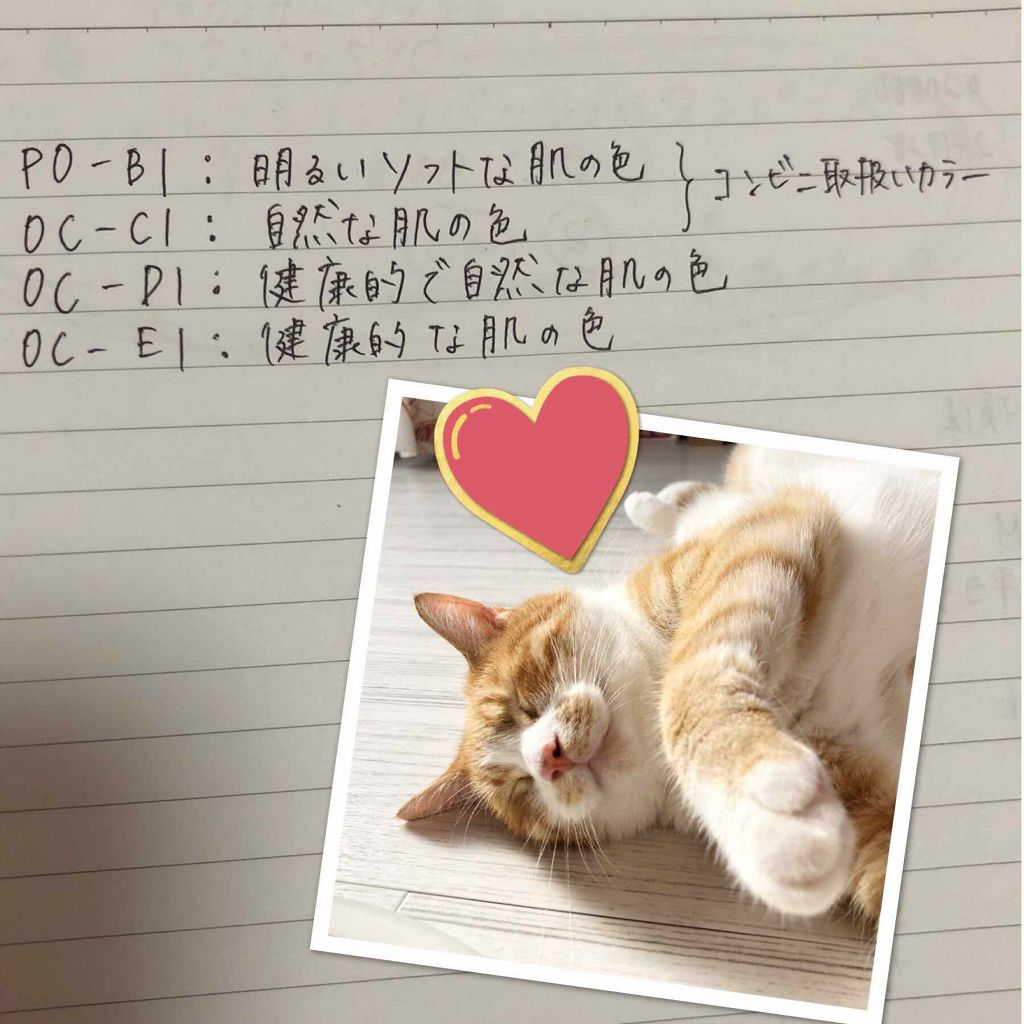 PO-B1：明るいソフトな肌の色 } コンビニ取扱いカラー
OC-C1：自然な肌の色
OC-D1：健康的で自然な肌の色
OC-E1：健康的な肌の色